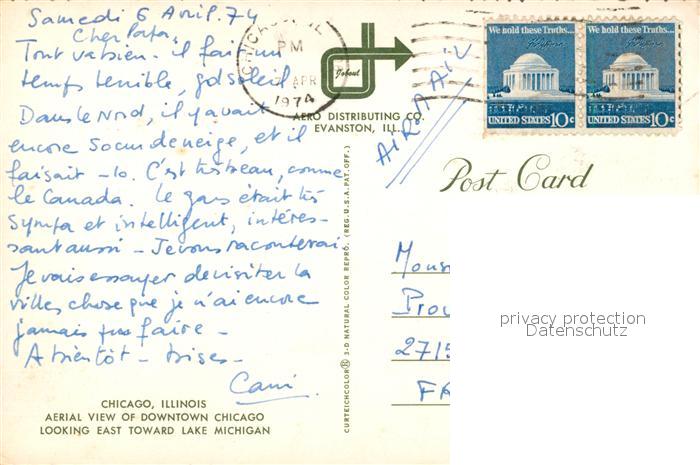 Samedi 6 Avril. 74
Cher papa,
Tout va bien. il fait un
temps terrible, gd soleil
Dans le Nord, il y avait
encore 50cm de neige, et il
faisait -10. C'est très beau, comme
le Canada. Le gars était très
sympa et intelligent, intéres-
sant aussi - Je vous raconterai
Je vais essayer de visiter la
ville, chose que je n'ai encore
jamais pu faire -
A bientôt - bises -
Cami.
CHICAGO, ILLINOIS
AERIAL VIEW OF DOWNTOWN CHICAGO
LOOKING EAST TOWARD LAKE MICHIGAN
CHICAGO, IL
PM
APR
1974
AERO DISTRIBUTING CO.
EVANSTON, ILL.
CURTEICHCOLOR® 3-D NATURAL COLOR REPRO. (REG. U.S.A. PAT. OFF.)
AIR MAIL
We hold these Truths...
UNITED STATES 10c
We hold these Truths...
UNITED STATES 10c
Post Card
Mons
Prou
2715
FR
privacy protection
Datenschutz